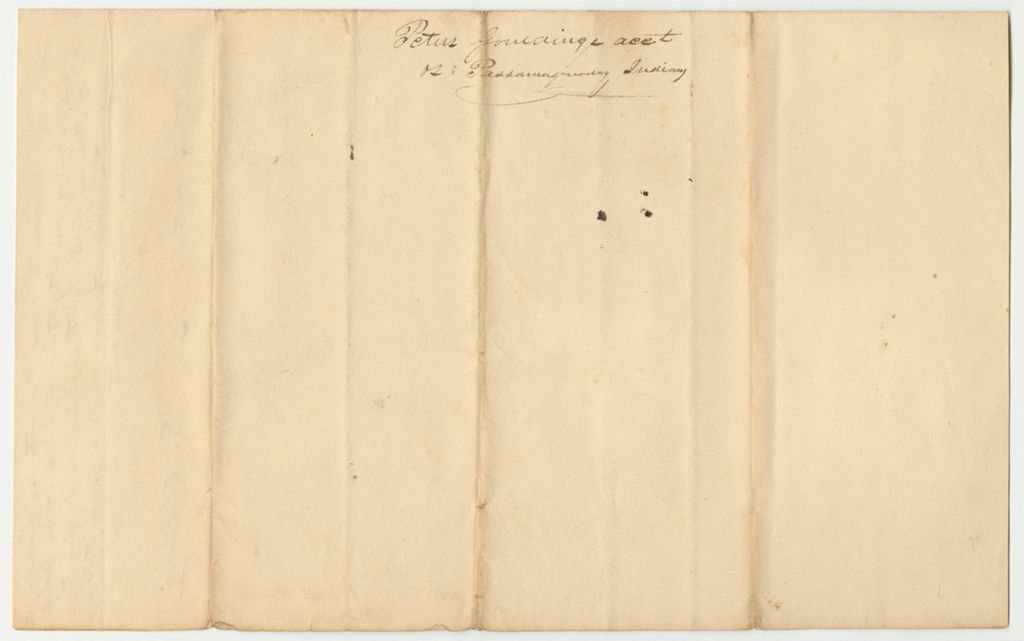 Peter Gouldings acct
vs: Passamaquoddy Indians